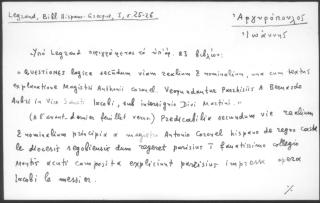 Legrand, Bibl Hispano-Grecque, I, σ. 25-26
Ἀργυρόπουλος
Ἰωάννης
Ὑπὸ Legrand περιγράφεται τὸ ὑπ' ἀρ. 83 βιβλίον:
« Questiones logice secundum viam realium & nominalium, una cum textus
explanatione Magistri Antonii Coronel. Venundantur Parrhisiis a Bernardo
Aubri in Vico Sancti Iacobi, sub intersignio Divi Martini. »
(A l'avant dernier feuillet verso.) Predicabilia secundum vie realium
& nominalium principia a magistro Antonio Coronel hispano de regno castel
le diocesis segobiensis dum regeret parisius ī famatissimo collegio
Montis acuti composita expliciunt parisius impressa opera
Iacobi le messier.